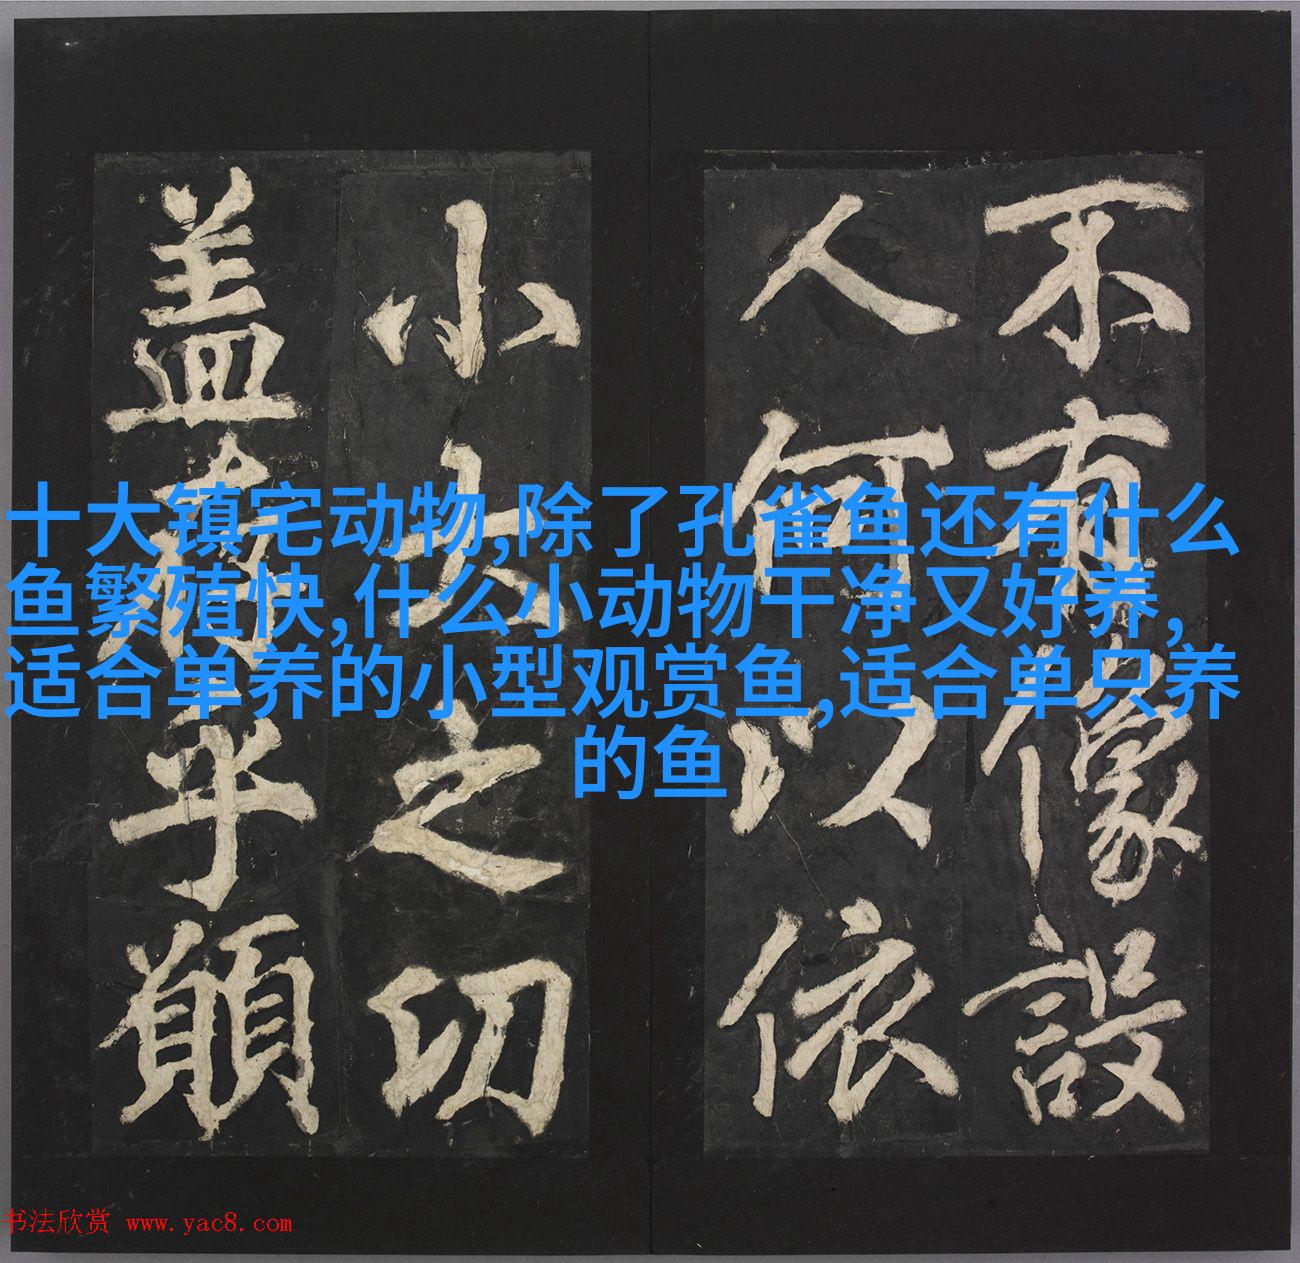 不有像設
人何以依
小大之切
盖乎願
十大镇宅动物,除了孔雀鱼还有什么
鱼繁殖快,什么小动物干净又好养,
适合单养的小型观赏鱼,适合单只养
的鱼
书法欣赏 www.yac8.com